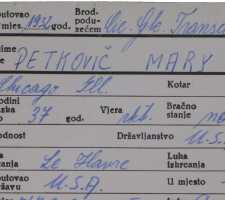 putovao
mjes. 1932 god. Brod- podu- zećem Cie. Gle. Transa
ime PETKOVIČ MARY
Chicago Ill. Kotar
godini
37 god. Vjera rkt. Bračno stanje
odnost Državljanstvo U.S.
Le Havre Luka iskrcanja
putovao državu U.S.A. U mjesto